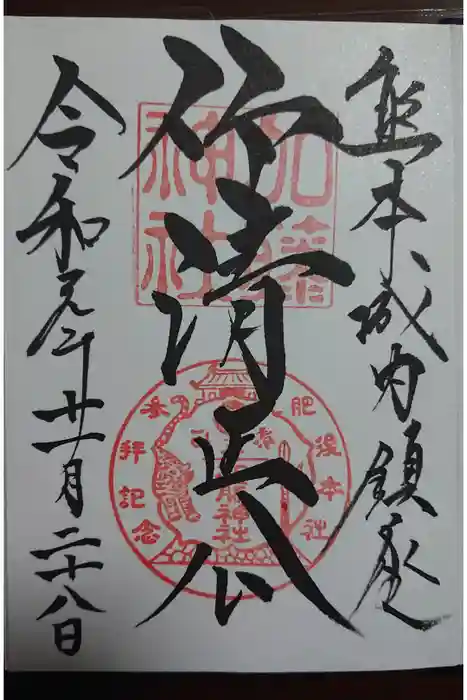 熊本城内鎮座
仰清正公
令和元年十一月二十八日
加藤神社
肥後本社
参拝記念